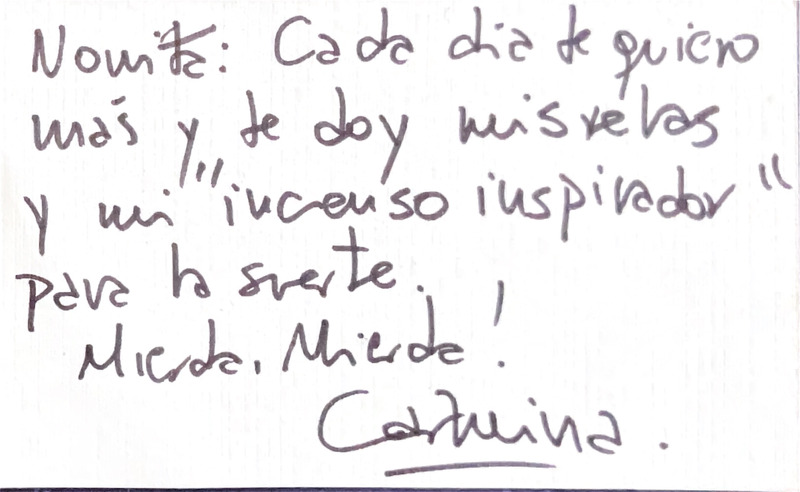 Nomita: Cada dia te quiero
más y te doy mis velas
y mi "incenso inspirador"
para la suerte.
Mierda, Mierda!
Carmina.